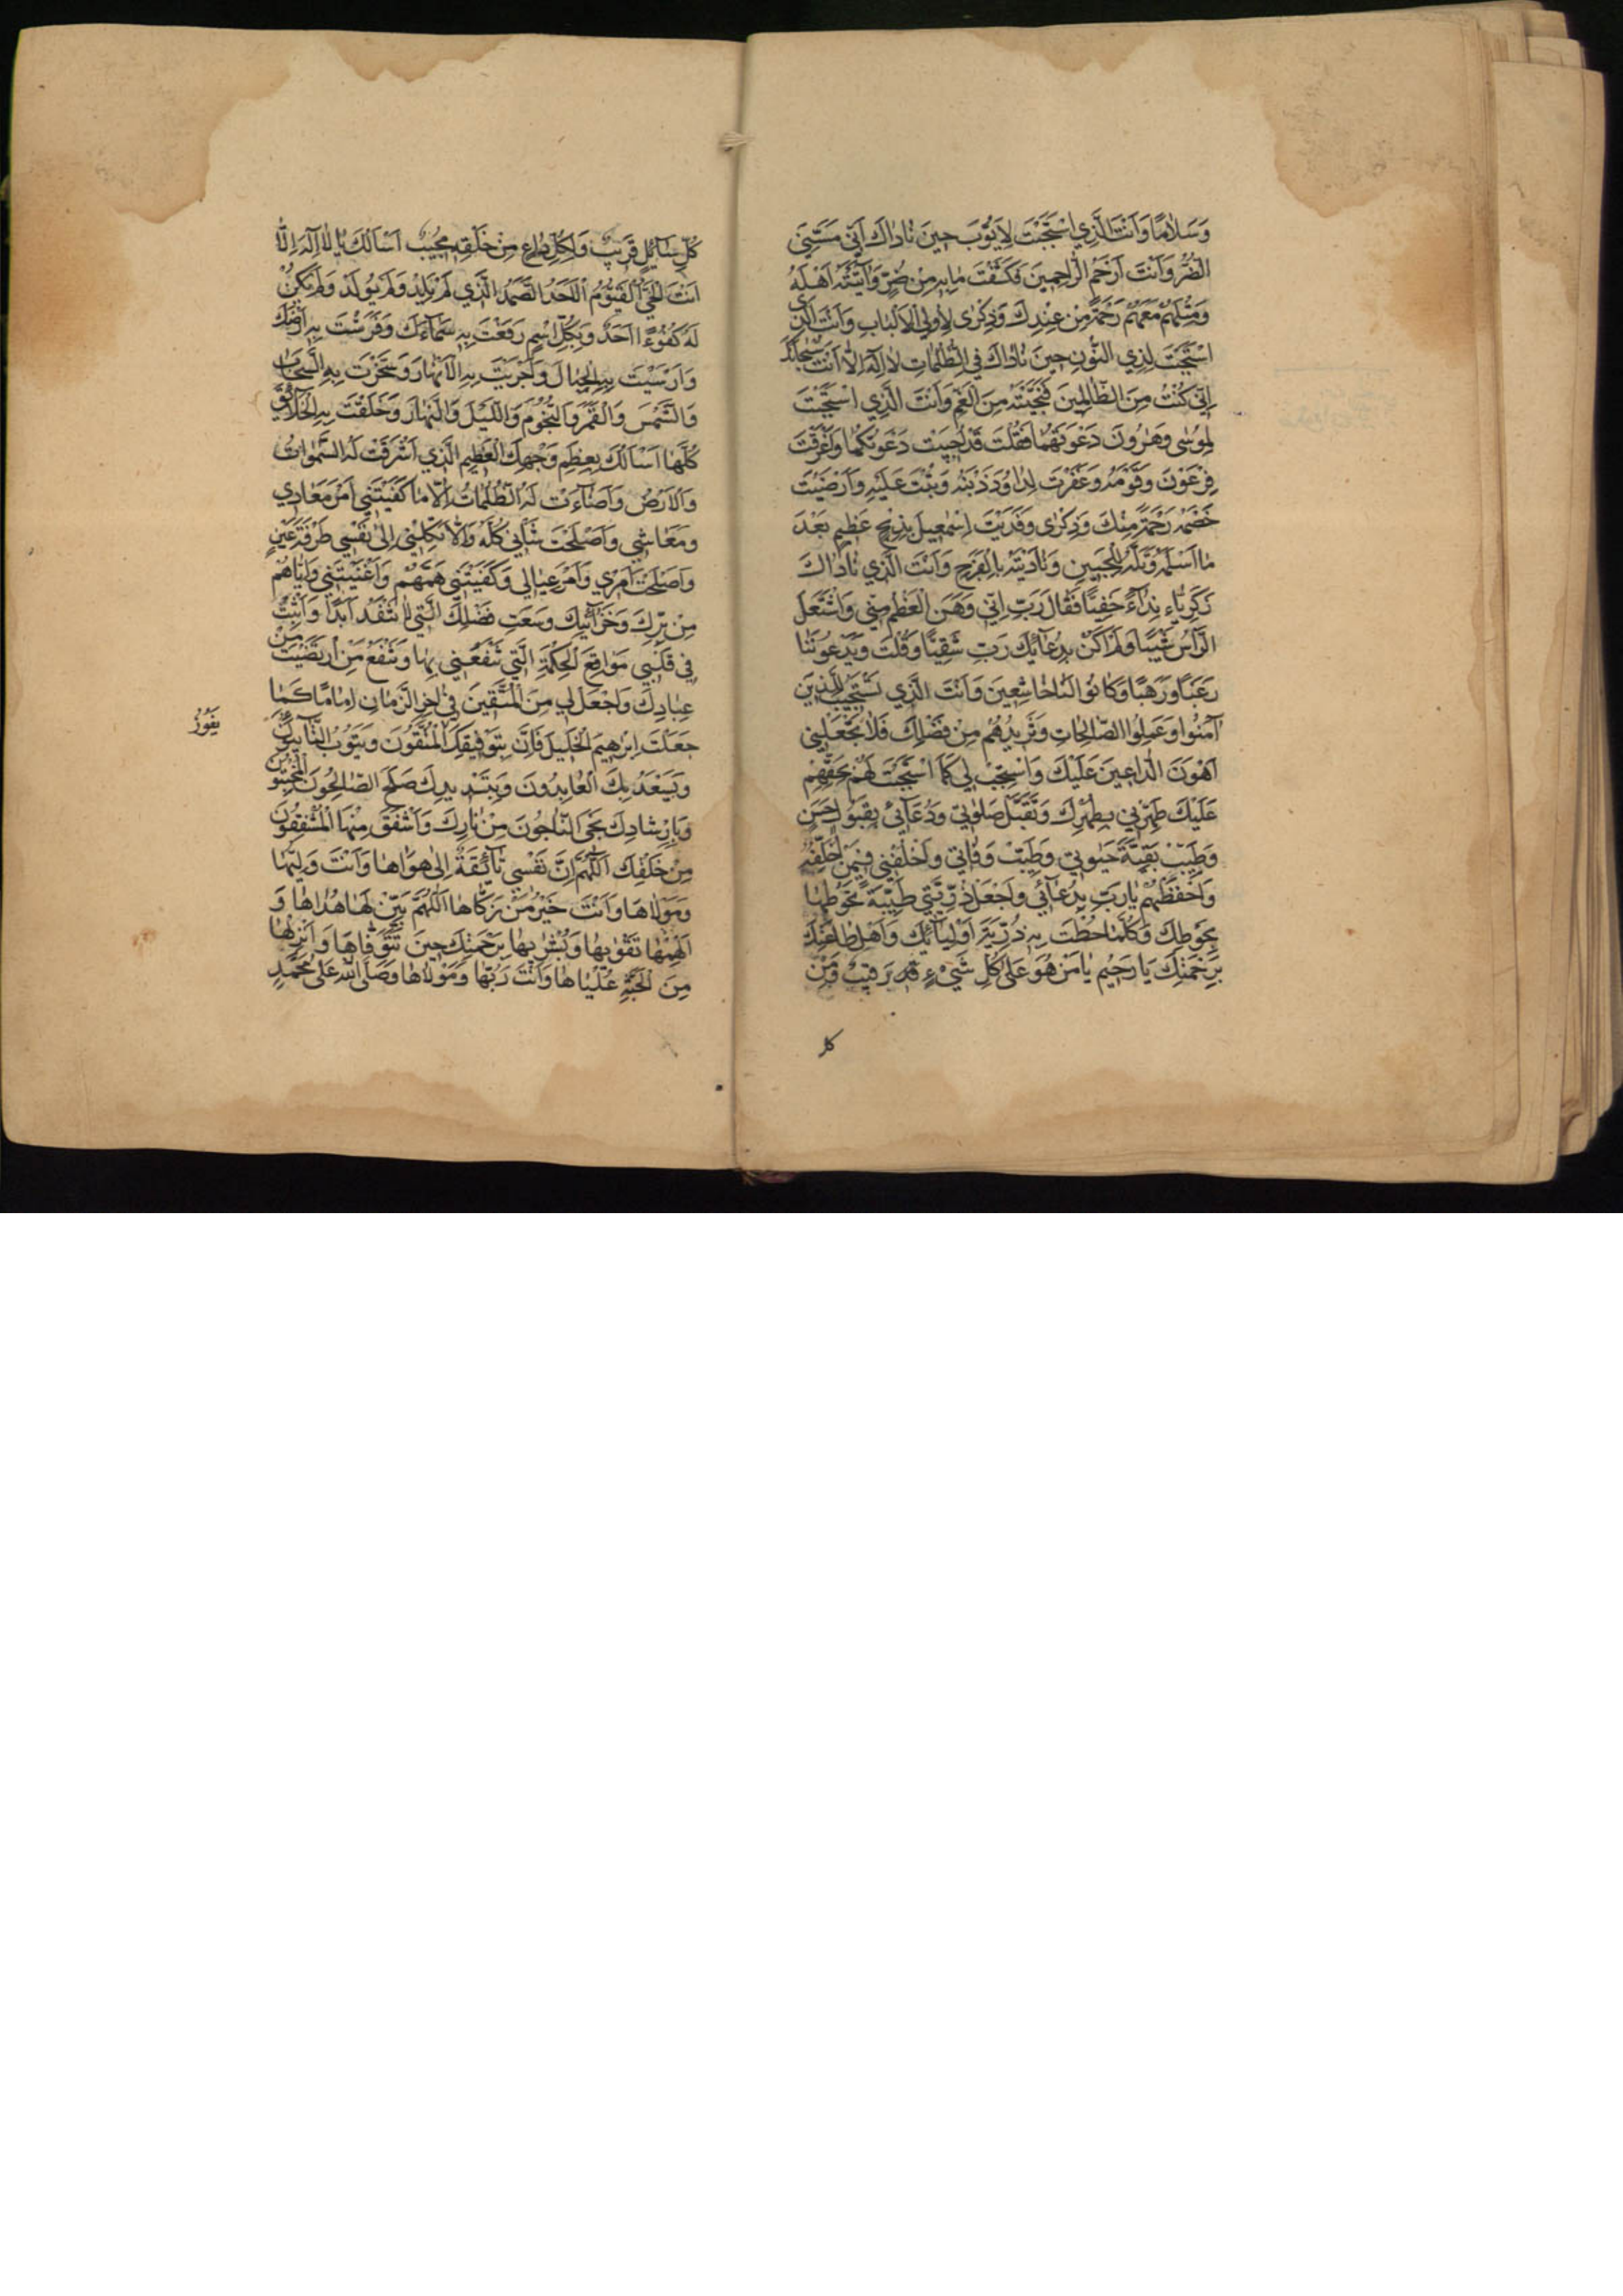 وَسَلَامًا وَاَنْتَ الَّذِي اسْتَجَبْتَ لِاَيُّوبَ حِينَ نَادَاكَ اَنِّي مَسَّنِيَ
الضُّرُّ وَاَنْتَ اَرْحَمُ الرَّاحِمِينَ فَكَشَفْتَ مَابِهِ مِنْ ضُرٍّ وَآتَيْتَهُ اَهْلَهُ
وَمِثْلَهُمْ مَعَهُمْ رَحْمَةً مِنْ عِنْدِكَ وَذِكْرٰى لِاُولِي الْاَلْبَابِ وَاَنْتَ الَّذِي
اسْتَجَبْتَ لِذِي النُّونِ حِينَ نَادَاكَ فِي الظُّلُمَاتِ لَا اِلٰهَ اِلَّا اَنْتَ سُبْحَانَكَ
اِنِّي كُنْتُ مِنَ الظَّالِمِينَ فَنَجَّيْتَهُ مِنَ الْغَمِّ وَاَنْتَ الَّذِي اسْتَجَبْتَ
لِمُوسٰى وَهٰرُونَ دَعْوَتَهُمَا فَقُلْتَ قَدْ اُجِيبَتْ دَعْوَتُكُمَا وَاَغْرَقْتَ
فِرْعَوْنَ وَقَوْمَهُ وَغَفَرْتَ لِدَاوُدَ ذَنْبَهُ وَتُبْتَ عَلَيْهِ وَاَرْضَيْتَ
خَصْمَهُ رَحْمَةً مِنْكَ وَذِكْرٰى وَفَدَيْتَ اِسْمٰعِيلَ بِذِبْحٍ عَظِيمٍ بَعْدَ
مَا اَسْلَمَ وَتَلَّهُ لِلْجَبِينِ وَنَادَيْتَهُ بِالْفَرَجِ وَاَنْتَ الَّذِي نَادَاكَ
زَكَرِيَّاءُ نِدَاءً خَفِيًّا فَقَالَ رَبِّ اِنِّي وَهَنَ الْعَظْمُ مِنِّي وَاشْتَعَلَ
الرَّاْسُ شَيْبًا وَلَمْ اَكُنْ بِدُعَائِكَ رَبِّ شَقِيًّا وَقُلْتَ وَيَدْعُونَنَا
رَغَبًا وَرَهَبًا وَكَانُوا لَنَا خَاشِعِينَ وَاَنْتَ الَّذِي تَسْتَجِيبُ لِلَّذِينَ
آمَنُوا وَعَمِلُوا الصَّالِحَاتِ وَتَزِيدُهُمْ مِنْ فَضْلِكَ فَلَا تَجْعَلْنِي
اَهْوَنَ الدَّاعِينَ عَلَيْكَ وَاسْتَجِبْ لِي كَمَا اسْتَجَبْتَ لَهُمْ بِحَقِّهِمْ
عَلَيْكَ طَهِّرْنِي بِطُهْرِكَ وَتَقَبَّلْ صَلٰوتِي وَدُعَائِي بِقَبُولٍ حَسَنٍ
وَطَيِّبْ بَقِيَّةَ حَيٰوتِي وَطَيِّبْ وَفَاتِي وَاخْلُفْنِي فِيمَنْ اَخْلُفُ
وَاحْفَظْهُمْ يَارَبِّ بِدُعَائِي وَاجْعَلْ ذُرِّيَّتِي طَيِّبَةً تَحُوطُهَا
بِحَوْطِكَ وَكُلَّمَا حُطْتَ بِهِ ذُرِّيَّةَ اَوْلِيَائِكَ وَاَهْلِ طَاعَتِكَ
بِرَحْمَتِكَ يَا رَحِيمُ يَا مَنْ هُوَ عَلٰى كُلِّ شَيْءٍ رَقِيبٌ وَمِنْ
كل
كُلِّ سَائِلٍ قَرِيبٌ وَلِكُلِّ دَاعٍ مِنْ خَلْقِهِ مُجِيبٌ اَسْاَلُكَ يَا لَا اِلٰهَ اِلَّا
اَنْتَ الْحَيُّ الْقَيُّومُ الْاَحَدُ الصَّمَدُ الَّذِي لَمْ يَلِدْ وَلَمْ يُولَدْ وَلَمْ يَكُنْ
لَهُ كُفُوءًا اَحَدٌ وَبِكُلِّ اسْمٍ رَفَعْتَ بِهِ سَمَاءَكَ وَفَرَشْتَ بِهِ اَرْضَكَ
وَاَرْسَيْتَ بِهِ الْجِبَالَ وَاَجْرَيْتَ بِهِ الْاَنْهَارَ وَسَخَّرْتَ بِهِ السَّحَابَ
وَالشَّمْسَ وَالْقَمَرَ وَالنُّجُومَ وَاللَّيْلَ وَالنَّهَارَ وَخَلَقْتَ بِهِ الْخَلَائِقَ
كُلَّهَا اَسْاَلُكَ بِعِظَمِ وَجْهِكَ الْعَظِيمِ الَّذِي اَشْرَقَتْ لَهُ السَّمٰوَاتُ
وَالْاَرْضُ وَاَضَاءَتْ لَهُ الظُّلُمَاتُ اِلَّا مَا كَفَيْتَنِي اَمْرَ مَعَادِي
وَمَعَاشِي وَاَصْلَحْتَ شَاْنِي كُلَّهُ وَلَا تَكِلْنِي اِلٰى نَفْسِي طَرْفَةَ عَيْنٍ
وَاَصْلَحْتَ اَمْرِي وَاَمْرَ عِيَالِي وَكَفَيْتَنِي هَمَّهُمْ وَاَغْنَيْتَنِي وَاِيَّاهُمْ
مِنْ بِرِّكَ وَخَزَائِنِكَ وَسَعَتِ فَضْلِكَ الَّتِي لَا تَنْفَدُ اَبَدًا وَاَثْبِتْ
فِي قَلْبِي مَوَاقِعَ الْحِكْمَةِ الَّتِي تَنْفَعُنِي بِهَا وَتَنْفَعُ مَنِ ارْتَضَيْتَ مِنْ
عِبَادِكَ وَاجْعَلْ لِي مِنَ الْمُتَّقِينَ فِي آخِرِ الزَّمَانِ اِمَامًا كَمَا
جَعَلْتَ اِبْرٰهِيمَ الْخَلِيلَ فَاِنَّ بِتَوْفِيقِكَ الْمُتَّقُونَ وَيَتُوبُ التَّائِبُونَ
يَفُوزُ
وَيَسْعَدُ بِكَ الْعَابِدُونَ وَبِتَسْدِيدِكَ صَلَحَ الصَّالِحُونَ الْمُخْبِتُونَ
وَبِاِرْشَادِكَ نَجَى النَّاجُونَ مِنْ نَارِكَ وَاَشْفَقَ مِنْهَا الْمُشْفِقُونَ
مِنْ خَلْقِكَ اَللّٰهُمَّ اِنَّ نَفْسِي تَائِقَةٌ اِلٰى هَوَاهَا وَاَنْتَ وَلِيُّهَا
وَمَوْلَاهَا وَاَنْتَ خَيْرُ مَنْ زَكَّاهَا اَللّٰهُمَّ بَيِّنْ لَهَا هُدَاهَا وَ
اَلْهِمْهَا تَقْوٰيهَا وَبَشِّرْهَا بِرَحْمَتِكَ حِينَ تَتَوَفَّاهَا وَاَنْزِلْهَا
مِنَ الْجَنَّةِ عُلْيَاهَا وَاَنْتَ رَبُّهَا وَمَوْلَاهَا وَصَلَّى اللّٰهُ عَلٰى مُحَمَّدٍ